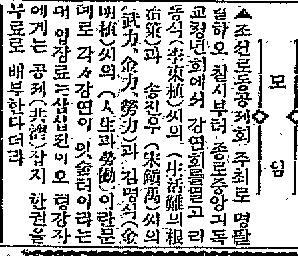 모임
▲조선로동공제회 주최로 명팔
일하오 칠시부터 종로중앙긔독
교청년회에서 강연회를열고 리
동식(李東植)씨의 (生活難의根
治策)과 송진우(宋鎭禹)씨의
(武力、金力、勞力)과 김명식(金
明植)씨의 (人生과勞働)이란문
데로 각각강연이 잇슬터이라는
대 입장료는삼십젼이오 령강자
에게는 공제(共濟)잡지 한권을
무료로 배부한다더라